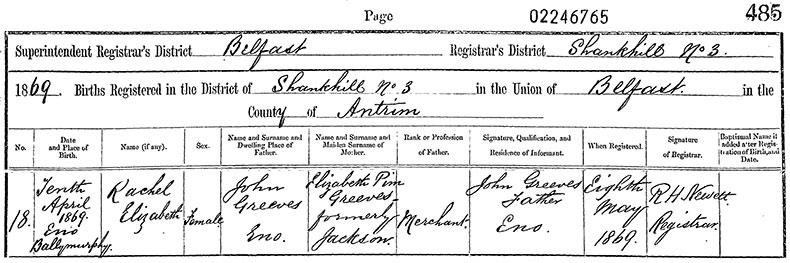 Page 02246765 485
Superintendent Registrar's District Belfast Registrar's District Shankhill No 3.
1869. Births Registered in the District of Shankhill No 3 in the Union of Belfast. in the
County of Antrim
No. Date and Place of Birth. Name (if any). Sex. Name and Surname and Dwelling Place of Father. Name and Surname and Maiden Surname of Mother. Rank or Profession of Father. Signature, Qualification, and Residence of Informant. When Registered. Signature of Registrar. Baptismal Name if added after Registration of Birth, and Date.
18.
Tenth
April
1869.
Eno
Ballymurphy.
Rachel
Elizabeth
Female
John
Greeves
Eno.
Elizabeth Pim
Greeves
formerly
Jackson.
Merchant.
John Greeves
Father
Eno.
Eighth
May
1869.
R H Newett
Registrar.